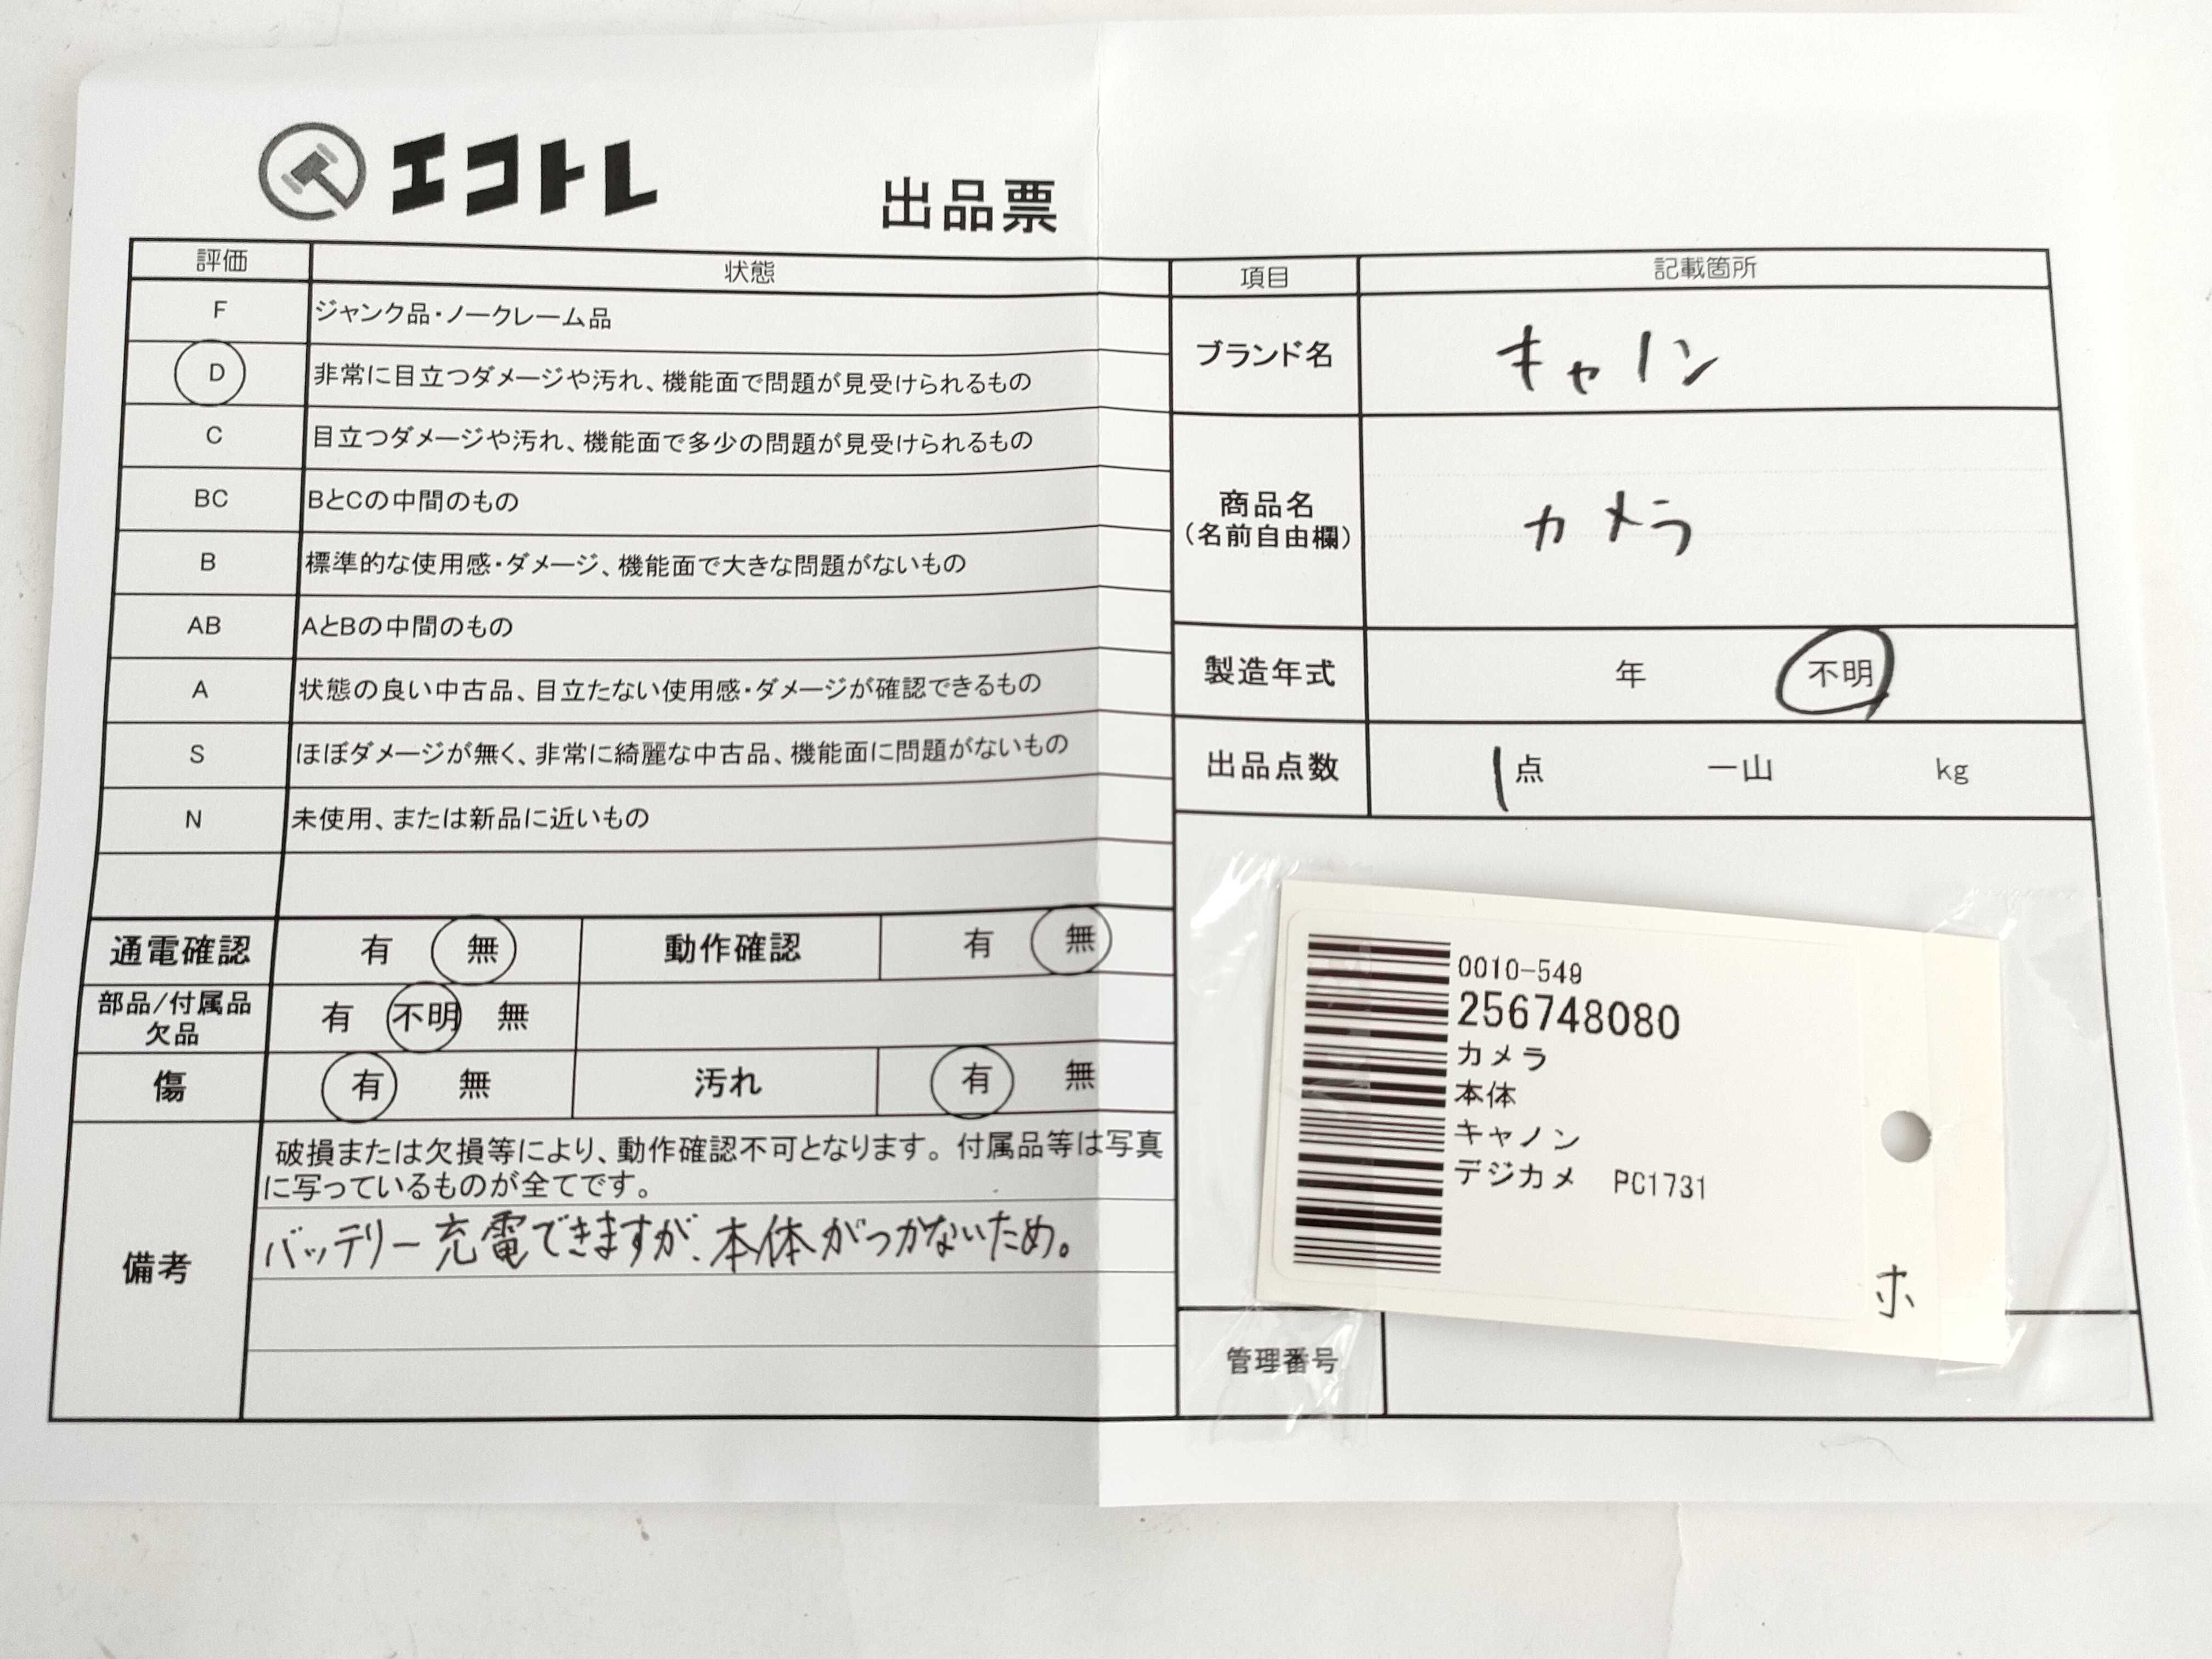 エコトレ
出品票
評価 状態
F ジャンク品・ノークレーム品
D 非常に目立つダメージや汚れ、機能面で問題が見受けられるもの
C 目立つダメージや汚れ、機能面で多少の問題が見受けられるもの
BC BとCの中間のもの
B 標準的な使用感・ダメージ、機能面で大きな問題がないもの
AB AとBの中間のもの
A 状態の良い中古品、目立たない使用感・ダメージが確認できるもの
S ほぼダメージが無く、非常に綺麗な中古品、機能面に問題がないもの
N 未使用、または新品に近いもの
通電確認 有 無 動作確認 有 無
部品/付属品
欠品 有 不明 無
傷 有 無 汚れ 有 無
備考
破損または欠損等により、動作確認不可となります。付属品等は写真
に写っているものが全てです。
バッテリー充電できますが、本体がつかないため。
項目 記載箇所
ブランド名 キャノン
商品名
(名前自由欄) カメラ
製造年式 年 不明
出品点数 1点 一山 kg
0010-549
256748080
カメラ
本体
キャノン
デジカメ PC1731
ホ
管理番号